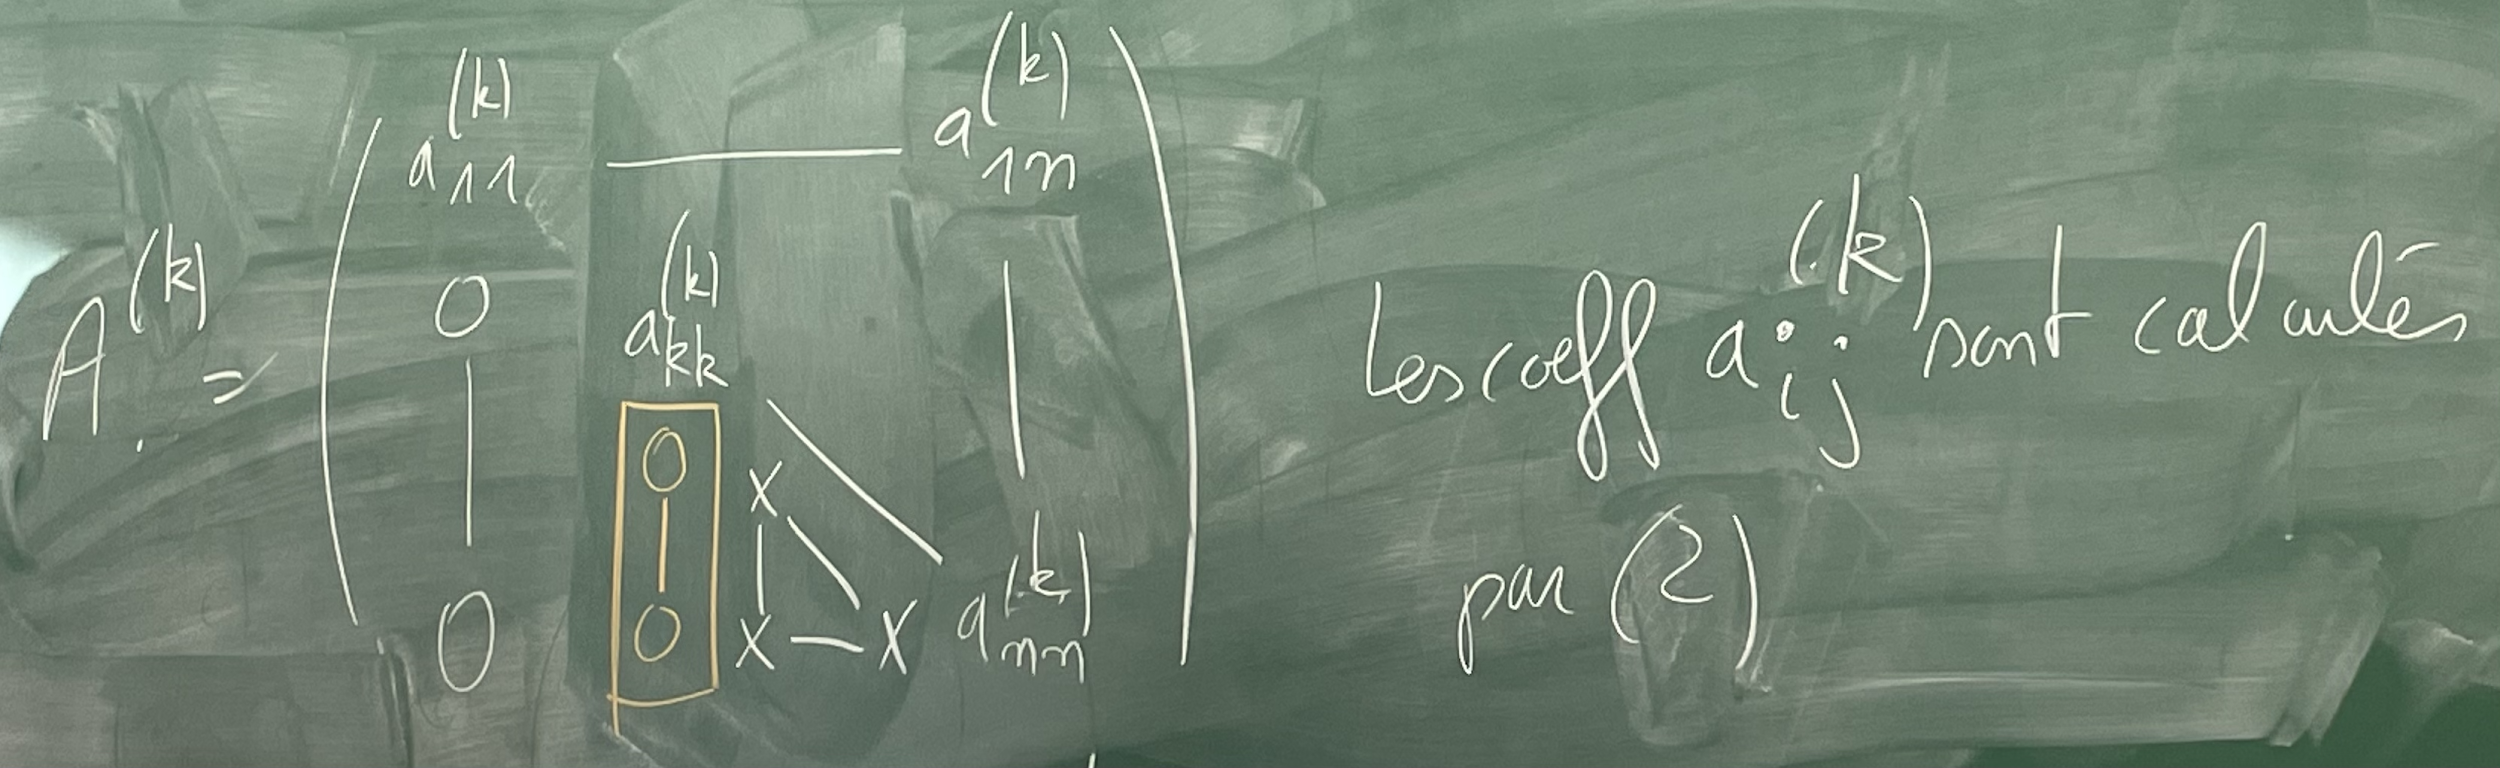 a₁₁⁽ᵏ⁾ — a₁ₙ⁽ᵏ⁾
A⁽ᵏ⁾ = ( 0 aₖₖ⁽ᵏ⁾ | )
0 x
0 0 x — x aₙₙ⁽ᵏ⁾
Les coeff aᵢⱼ⁽ᵏ⁾ sont calculés
par (2)